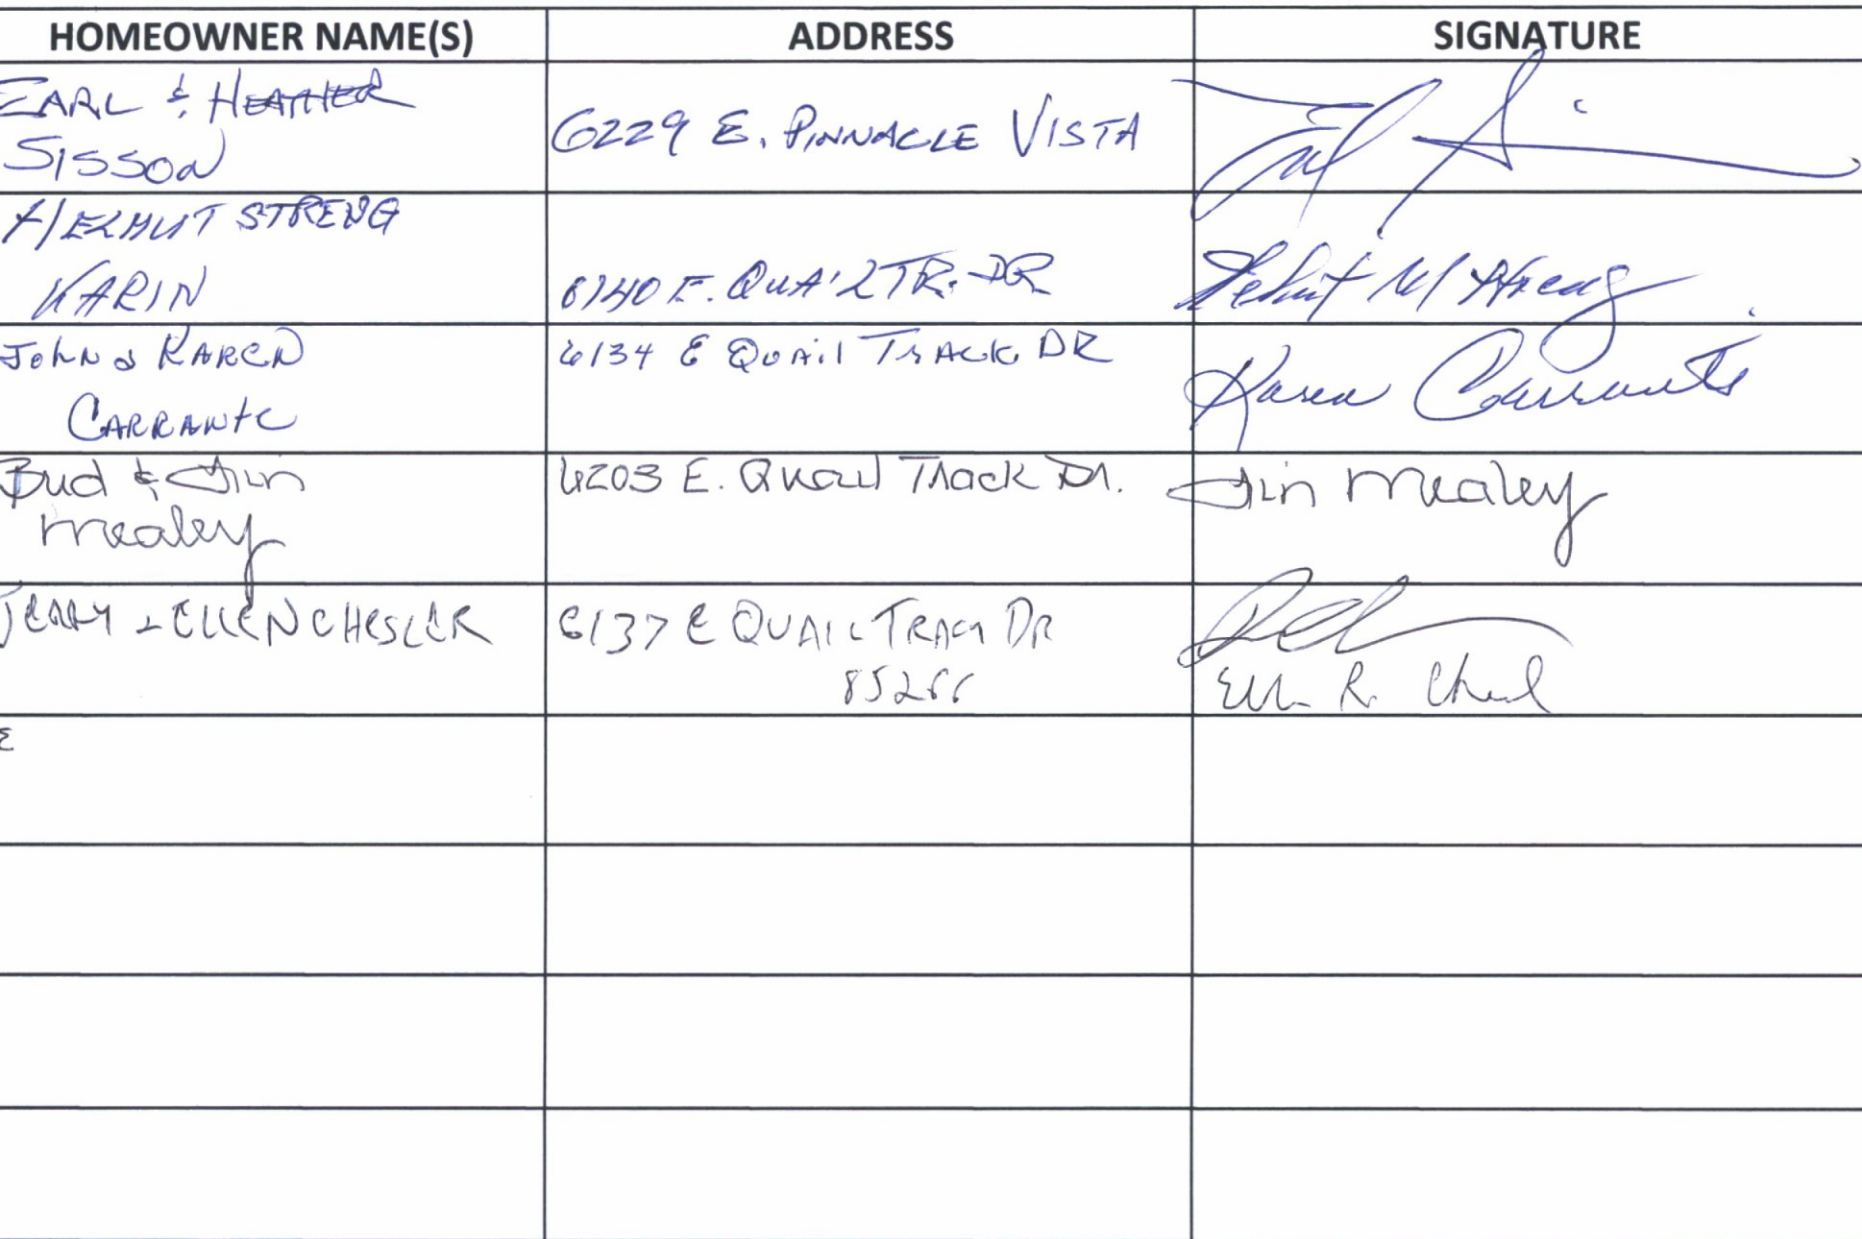 HOMEOWNER NAME(S) ADDRESS SIGNATURE
EARL & HEATHER
SISSON
6229 E. PINNACLE VISTA
HELMUT STRENG
KARIN
6140 E. QUAIL TR. DR
Helmut M Streng
JOHN & KAREN
CARRANTE
6134 E QUAIL TRACK DR
Karen Carrante
Bud & Jin
Mealey
6203 E. Quail Track Dr.
Jin Mealey
JERRY & ELLEN CHESLER
6137 E QUAIL TRACK DR
85266
Ellen R. Chesl
E